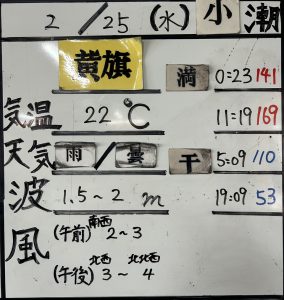 2/25(水)小潮
黄旗 満 0:23 141
気温 22℃ 11:19 169
天気 雨/曇 干 5:09 110
波 1.5~2m 19:09 53
風 (午前) 南西 2~3
(午後) 北西 3~ 北北西 4